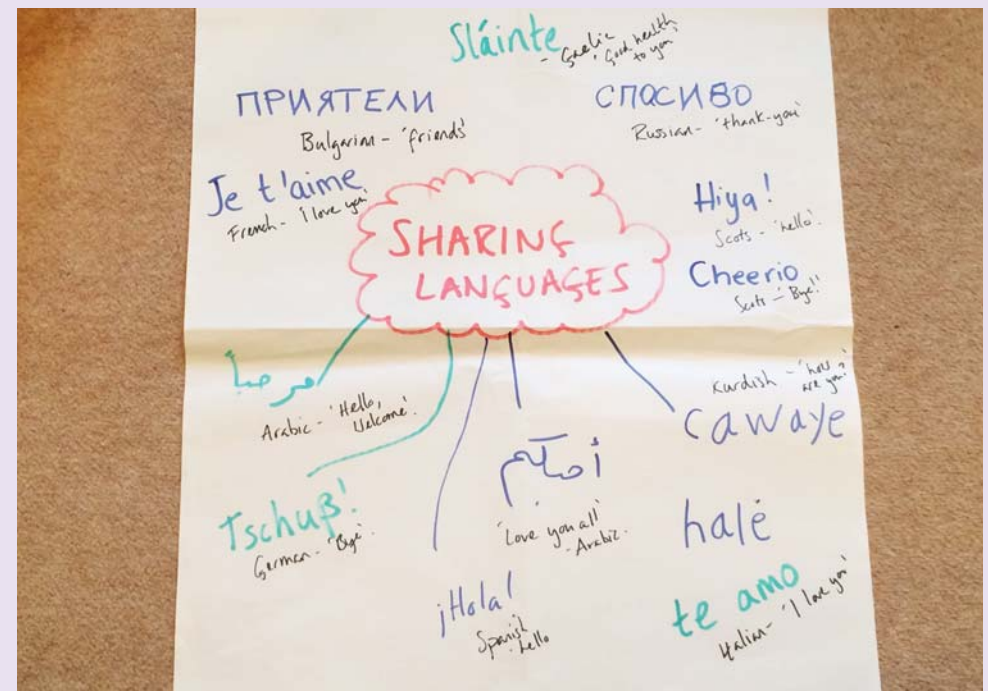 Sláinte
- Gaelic
'Good health
to you'
ПРИЯТЕЛИ
Bulgarian - 'friends'
СПАСИВО
Russian - 'thank-you'
Je t'aime
French - 'I love you'
SHARING
LANGUAGES
Hiya!
Scots - 'hello'.
Cheerio
Scots - 'Bye!'
مرحباً
Arabic - 'Hello,
Welcome'.
Kurdish - 'how
are you?'
cawaye
halé
Tschuß!
German - 'Bye'.
أحبكم
'Love you all'
- Arabic.
¡Hola!
Spanish
hello
te amo
Italian - 'I love you'